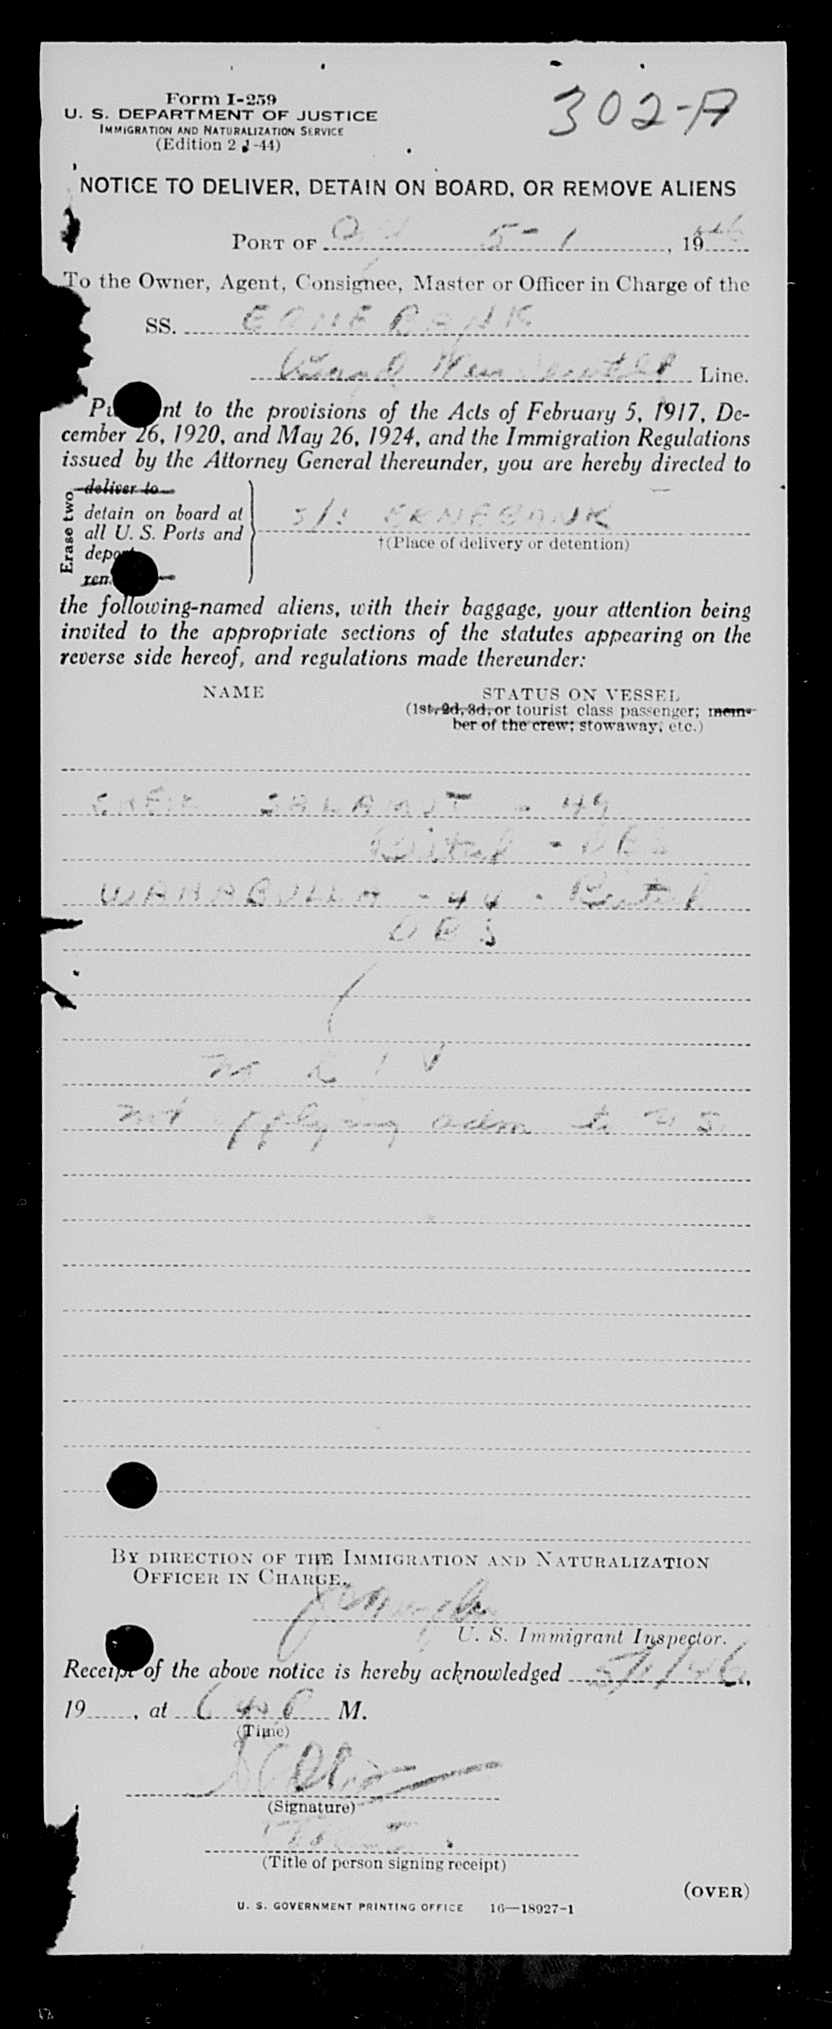 302-A
Form I-259
U. S. DEPARTMENT OF JUSTICE
IMMIGRATION AND NATURALIZATION SERVICE
(Edition 2 1-44)
NOTICE TO DELIVER, DETAIN ON BOARD, OR REMOVE ALIENS
PORT OF 5-1, 19
To the Owner, Agent, Consignee, Master or Officer in Charge of the
SS. ERNEBANK
Line.
nt to the provisions of the Acts of February 5, 1917, De-
cember 26, 1920, and May 26, 1924, and the Immigration Regulations
issued by the Attorney General thereunder, you are hereby directed to
Erase two
deliver to
detain on board at
all U. S. Ports and
depo
rem
S/S ERNEBANK
†(Place of delivery or detention)
the following-named aliens, with their baggage, your attention being
invited to the appropriate sections of the statutes appearing on the
reverse side hereof, and regulations made thereunder:
NAME
STATUS ON VESSEL
(1st, 2d, 3d, or tourist class passenger; mem-
ber of the crew; stowaway, etc.)
- 49
British - DBS
WAHABULLA - 44 - British
DBS
not applying adm to U S
BY DIRECTION OF THE IMMIGRATION AND NATURALIZATION
OFFICER IN CHARGE.
U. S. Immigrant Inspector.
Receipt of the above notice is hereby acknowledged 5/1/46,
19, at M.
(Time)
(Signature)
(Title of person signing receipt)
(OVER)
U. S. GOVERNMENT PRINTING OFFICE 16—18927-1